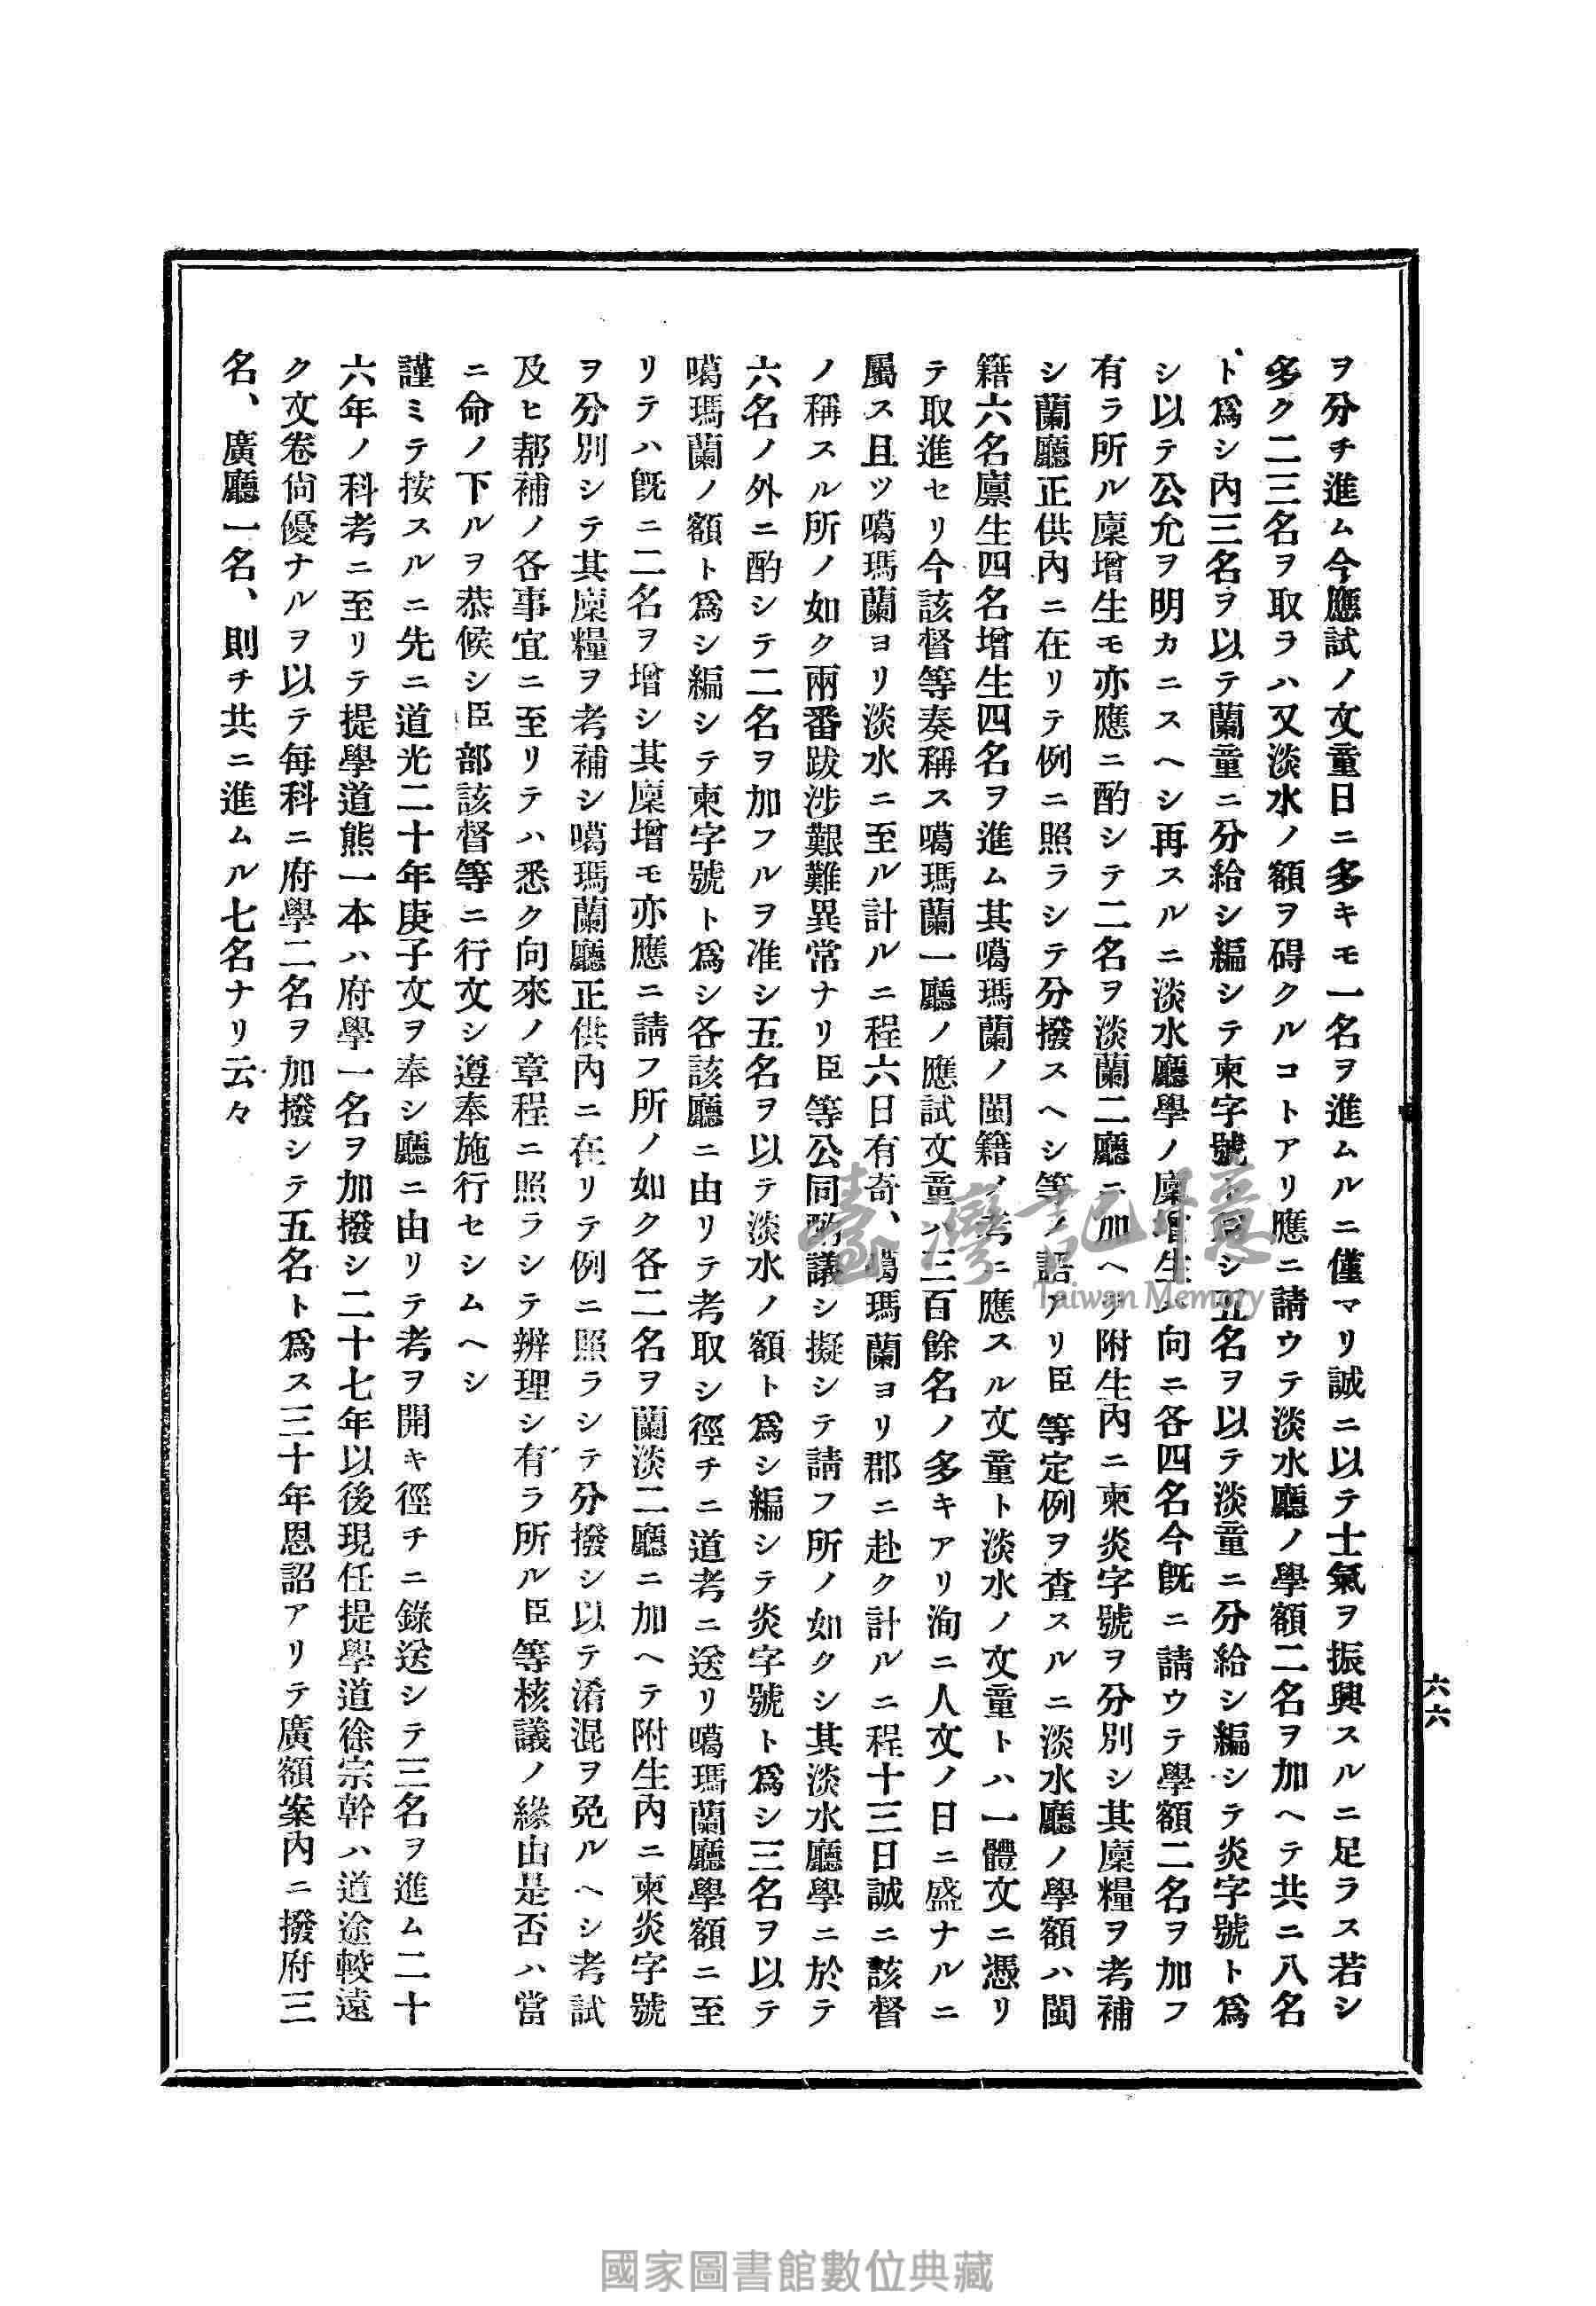 ヲ分チ進ム今應試ノ文童日ニ多キモ一名ヲ進ムルニ僅マリ誠ニ以テ士氣ヲ振興スルニ足ラス若シ
多ク二三名ヲ取ラハ又淡水ノ額ヲ碍クルコトアリ應ニ請ウテ淡水廳ノ學額二名ヲ加ヘテ共ニ八名
ト爲シ內三名ヲ以テ蘭童ニ分給シ編シテ東字號ト爲シ五名ヲ以テ淡童ニ分給シ編シテ炎字號ト爲
シ以テ公允ヲ明カニスヘシ再スルニ淡水廳學ノ廩增生ハ向ニ各四名今既ニ請ウテ學額二名ヲ加フ
有ラ所ル廩增生モ亦應ニ酌シテ二名ヲ淡蘭二廳ニ加ヘテ附生內ニ東炎字號ヲ分別シ其廩糧ヲ考補
シ蘭廳正供內ニ在リテ例ニ照ラシテ分撥スヘシ等ノ語アリ臣等定例ヲ査スルニ淡水廳ノ學額ハ閩
籍六名廩生四名增生四名ヲ進ム其噶瑪蘭ノ閩籍ノ考ニ應スル文童ト淡水ノ文童トハ一體文ニ憑リ
テ取進セリ今該督等奏稱ス噶瑪蘭一廳ノ應試文童ハ三百餘名ノ多キアリ洵ニ人文ノ日ニ盛ナルニ
屬ス且ツ噶瑪蘭ヨリ淡水ニ至ル計ルニ程六日有奇、噶瑪蘭ヨリ郡ニ赴ク計ルニ程十三日誠ニ該督
ノ稱スル所ノ如ク兩番跋涉艱難異常ナリ臣等公同酌議シ擬シテ請フ所ノ如クシ其淡水廳學ニ於テ
六名ノ外ニ酌シテ二名ヲ加フルヲ准シ五名ヲ以テ淡水ノ額ト爲シ編シテ炎字號ト爲シ三名ヲ以テ
噶瑪蘭ノ額ト爲シ編シテ東字號ト爲シ各該廳ニ由リテ考取シ徑チニ道考ニ送リ噶瑪蘭廳學額ニ至
リテハ既ニ二名ヲ增シ其廩增モ亦應ニ請フ所ノ如ク各二名ヲ蘭淡二廳ニ加ヘテ附生內ニ東炎字號
ヲ分別シテ其廩糧ヲ考補シ噶瑪蘭廳正供內ニ在リテ例ニ照ラシテ分撥シ以テ淆混ヲ免ルヘシ考試
及ヒ帮補ノ各事宜ニ至リテハ悉ク向來ノ章程ニ照ラシテ辨理シ有ラ所ル臣等核議ノ緣由是否ハ當
ニ命ノ下ルヲ恭候シ臣部該督等ニ行文シ遵奉施行セシムヘシ
謹ミテ按スルニ先ニ道光二十年庚子文ヲ奉シ廳ニ由リテ考ヲ開キ徑チニ錄送シテ三名ヲ進ム二十
六年ノ科考ニ至リテ提學道熊一本ハ府學一名ヲ加撥シ二十七年以後現任提學道徐宗幹ハ道途較遠
ク文卷尙優ナルヲ以テ每科ニ府學二名ヲ加撥シテ五名ト爲ス三十年恩詔アリテ廣額案內ニ撥府三
名、廣廳一名、則チ共ニ進ムル七名ナリ云々
六六
臺灣記憶
Taiwan Memory
國家圖書館數位典藏